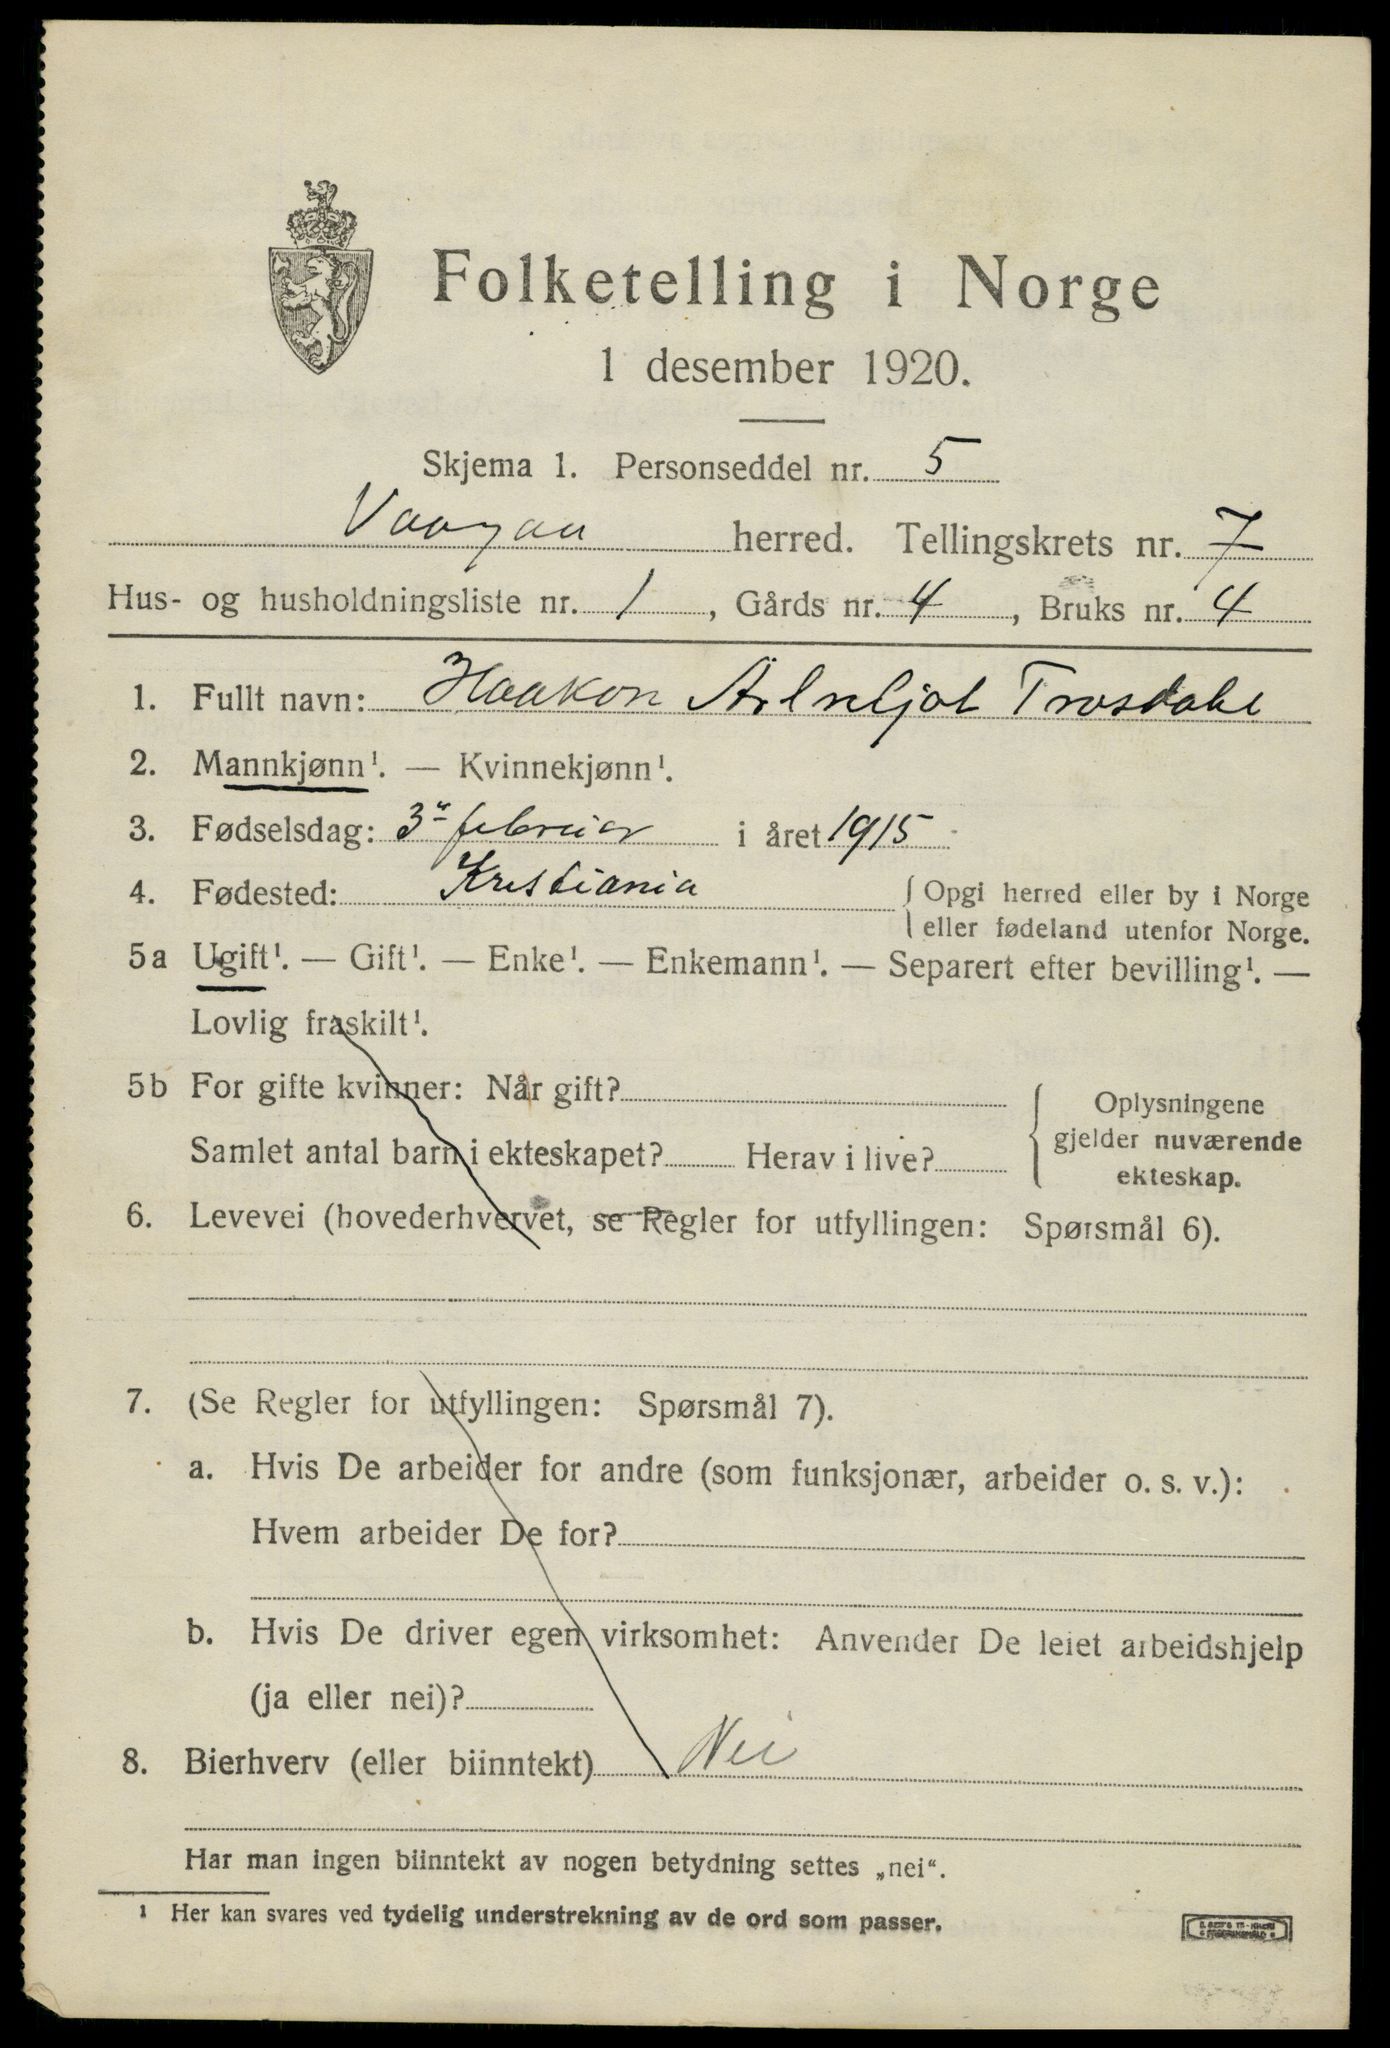 Folketelling i Norge
1 desember 1920.
Skjema 1. Personseddel nr. 5
Vaagaa herred. Tellingskrets nr. 7
Hus- og husholdningsliste nr. 1, Gårds nr. 4, Bruks nr. 4
1. Fullt navn: Haakon Trosdahl
2. Mannkjønn¹. — Kvinnekjønn¹.
3. Fødselsdag: 3" februar i året 1915
4. Fødested: Kristiania
Opgi herred eller by i Norge
eller fødeland utenfor Norge.
5a Ugift¹. — Gift¹. — Enke¹. — Enkemann¹. — Separert efter bevilling¹. —
Lovlig fraskilt¹.
5b For gifte kvinner: Når gift?
Samlet antal barn i ekteskapet? Herav i live?
Oplysningene
gjelder nuværende
ekteskap.
6. Levevei (hovederhvervet, se Regler for utfyllingen: Spørsmål 6).
7. (Se Regler for utfyllingen: Spørsmål 7).
a. Hvis De arbeider for andre (som funksjonær, arbeider o. s. v.):
Hvem arbeider De for?
b. Hvis De driver egen virksomhet: Anvender De leiet arbeidshjelp
(ja eller nei)?
8. Bierhverv (eller biinntekt) Nei
Har man ingen biinntekt av nogen betydning settes „nei“.
¹ Her kan svares ved tydelig understrekning av de ord som passer.